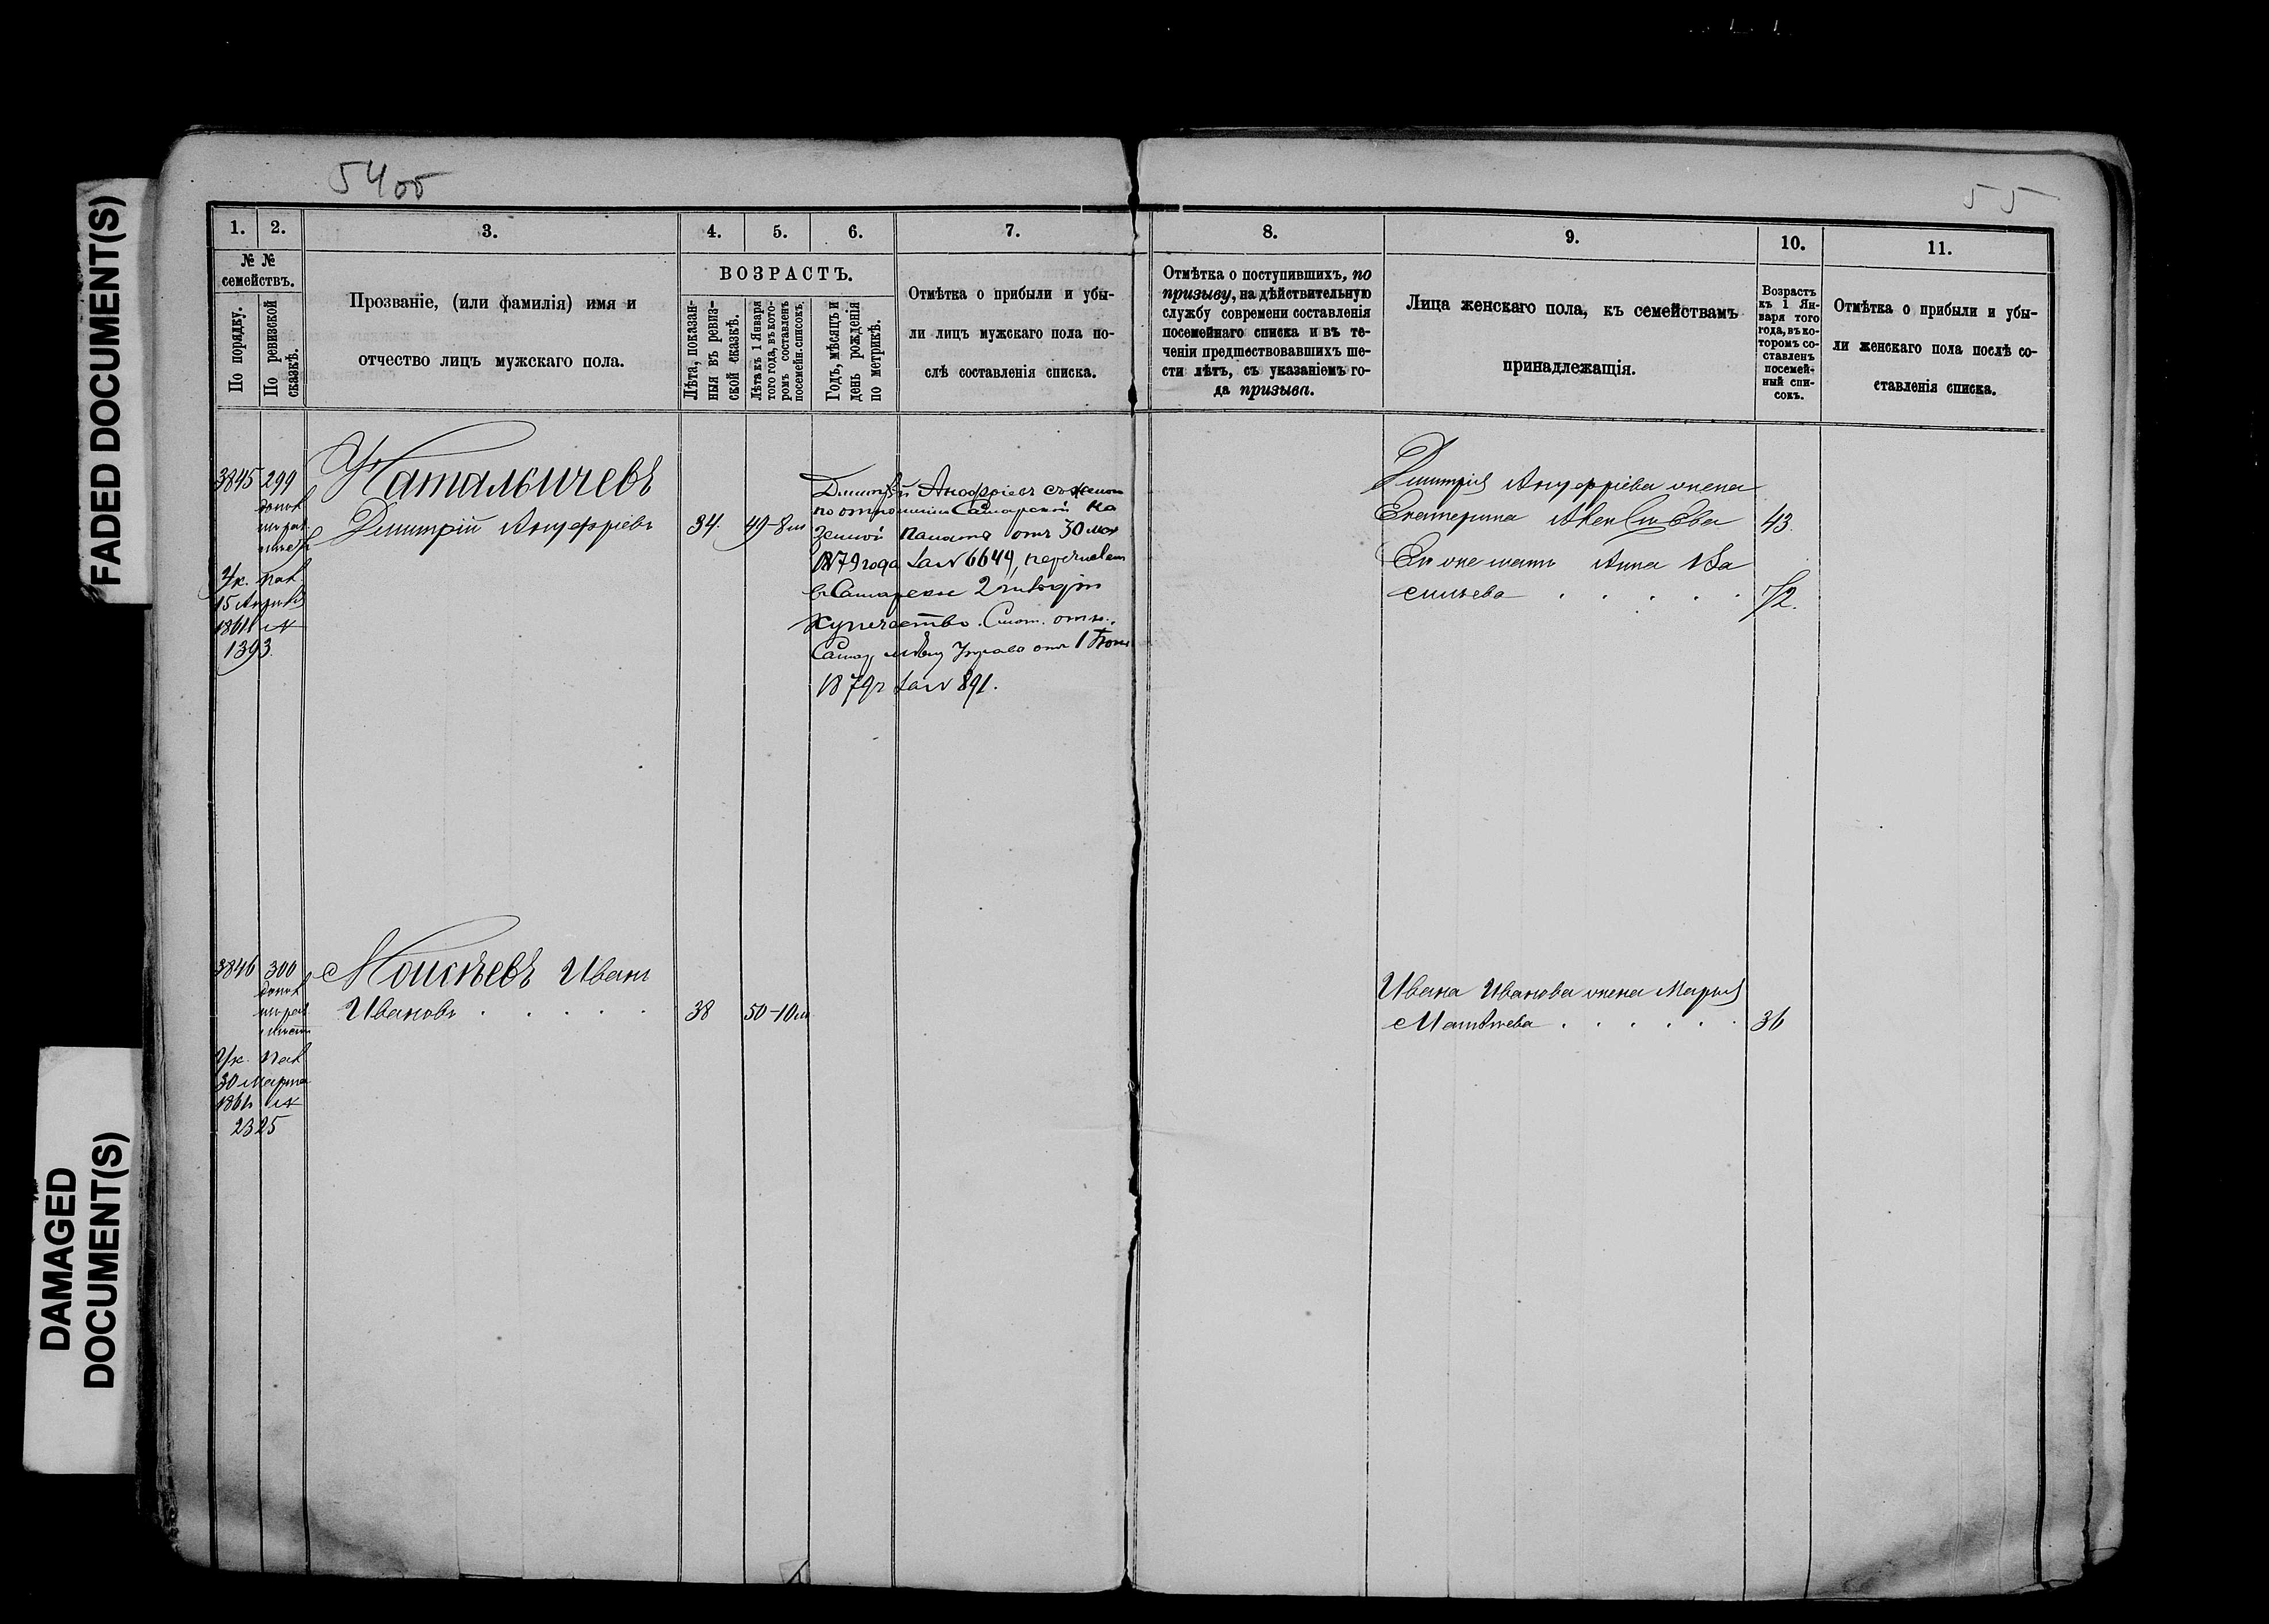 FADED DOCUMENT(S)
DAMAGED
DOCUMENT(S)
54об
55
1. 2. 3. 4. 5. 6. 7. 8. 9. 10. 11.
№ №
семействъ.
По порядку.
По ревизской
сказкѣ.
Прозваніе, (или фамилія) имя и
отчество лицъ мужскаго пола.
ВОЗРАСТЪ.
Лѣта, показан-
ныя въ ревиз-
ской сказкѣ.
Лѣта къ 1 Января
того года, въ кото-
ромъ составленъ
посемейн. списокъ.
Годъ, мѣсяцъ и
день рожденія
по метрикѣ.
Отмѣтка о прибыли и убы-
ли лицъ мужскаго пола по-
слѣ составленія списка.
Отмѣтка о поступившихъ, по
призыву, на дѣйствительную
службу современи составленія
посемейнаго списка и въ те-
ченіи предшествовавшихъ ше-
сти лѣтъ, съ указаніемъ го-
да призыва.
Лица женскаго пола, къ семействамъ
принадлежащія.
Возрастъ
къ 1 Ян-
варя того
года, въ ко-
торомъ со-
ставленъ
посемей-
ный спи-
сокъ.
Отмѣтка о прибыли и убы-
ли женскаго пола послѣ со-
ставленія списка.
3845 299
допол
Ук. пал
15 Апрѣля
186 №
1393.
Натальичевъ
Дмитрій Ануфріевъ 34. 49-8
Дмитрій Анофріевъ съ женою
по отношенію Самарской Ка
зенной Палаты отъ 30 мая
1879 года за № 6649, перечислен
въ Самарское 2 гильдіи
купечество. Смот. отн.
Самар. Управы отъ 1 Іюня
1879 г за № 891.
Дмитрія Ануфріева жена
Екатерина 43.
Ево же мать Анна Ва
сильева 72.
3846 300
допол
Ук. пал
30 Марта
186 №
2325
Моисѣевъ Иванъ
Ивановъ 38 50-10
Ивана Иванова жена Марья
Матвѣева 36